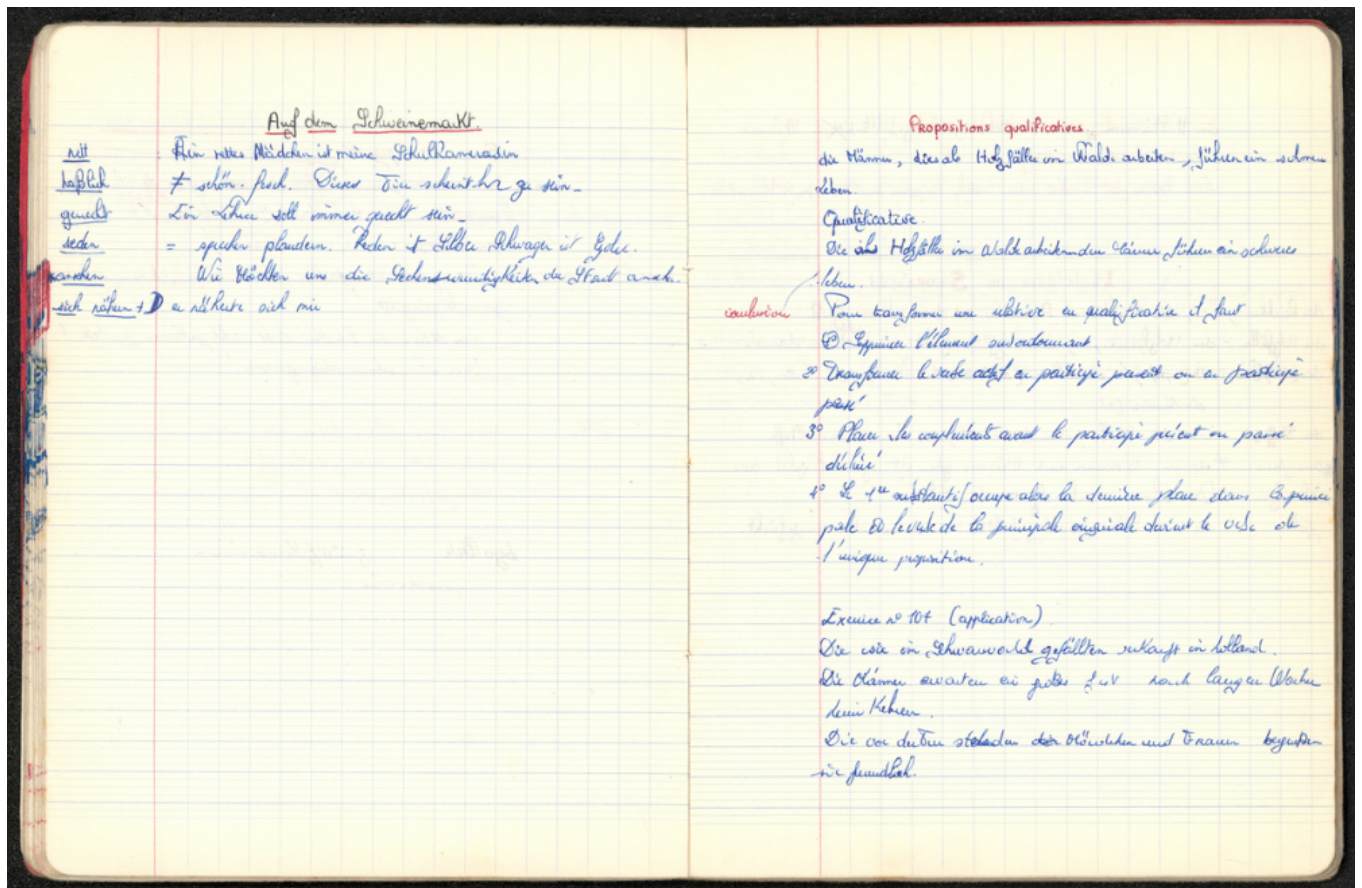 Auf dem Schweinemarkt.
nett : Ein nettes Mädchen ist meine Schulkameradin
häßlich ≠ schön. frech. Dieses Tier scheint zu sein_
gerecht Ein Lehrer soll immer gerecht sein_
reden = sprechen plaudern. Reden ist Silber Schwagen ist Gold.
ansehen Wir möchten uns die Sehenswürdigkeiten der Stadt anseh.
sich nähern + D er näherte sich mir
Propositions qualificatives
die Männer, die als Holzfäller im Walde arbeiten, führen ein schweres
Leben.
Qualificative.
Die als Holzfäller im Walde arbeitenden Männer führen ein schweres
leben.
conclusion Pour transformer une relative en qualificative il faut
1° Supprimer l'élément subordonnant
2° Transformer le verbe actif en participe present ou en participe
passé
3° Placer les compléments avant le participe présent ou passé
décliné
4° Le 1er substantif occupe alors la dernière place dans la princi
pale et le verbe de la principale originale devient le verbe de
l'unique proposition.
Exercice n° 107 (application)
Die im Schwarzwald gefällten in Holland.
Die Männer erwarten ein großes nach langen Wochen
Kehren.
Die vor der Türe stehenden Mädchen und Frauen begrüßen
sie freundlich.